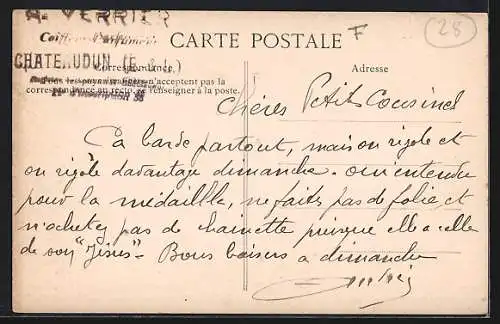 A. VERRIER
Coiffeur-Parfumeur
CHATEAUDUN (E.-&-L.)
F
28
CARTE POSTALE
Correspondance
Adresse
n'acceptent pas la
correspondance au recto se renseigner à la poste.
Chères Petites Cousines
Ça barde partout, mais on rigole et
on rigole davantage dimanche - ou entendu
pour la médaille, ne faites pas de folie et
n'achetez pas de chainette puisque elle a celle
de son "Jésus" - Bons baisers a dimanche